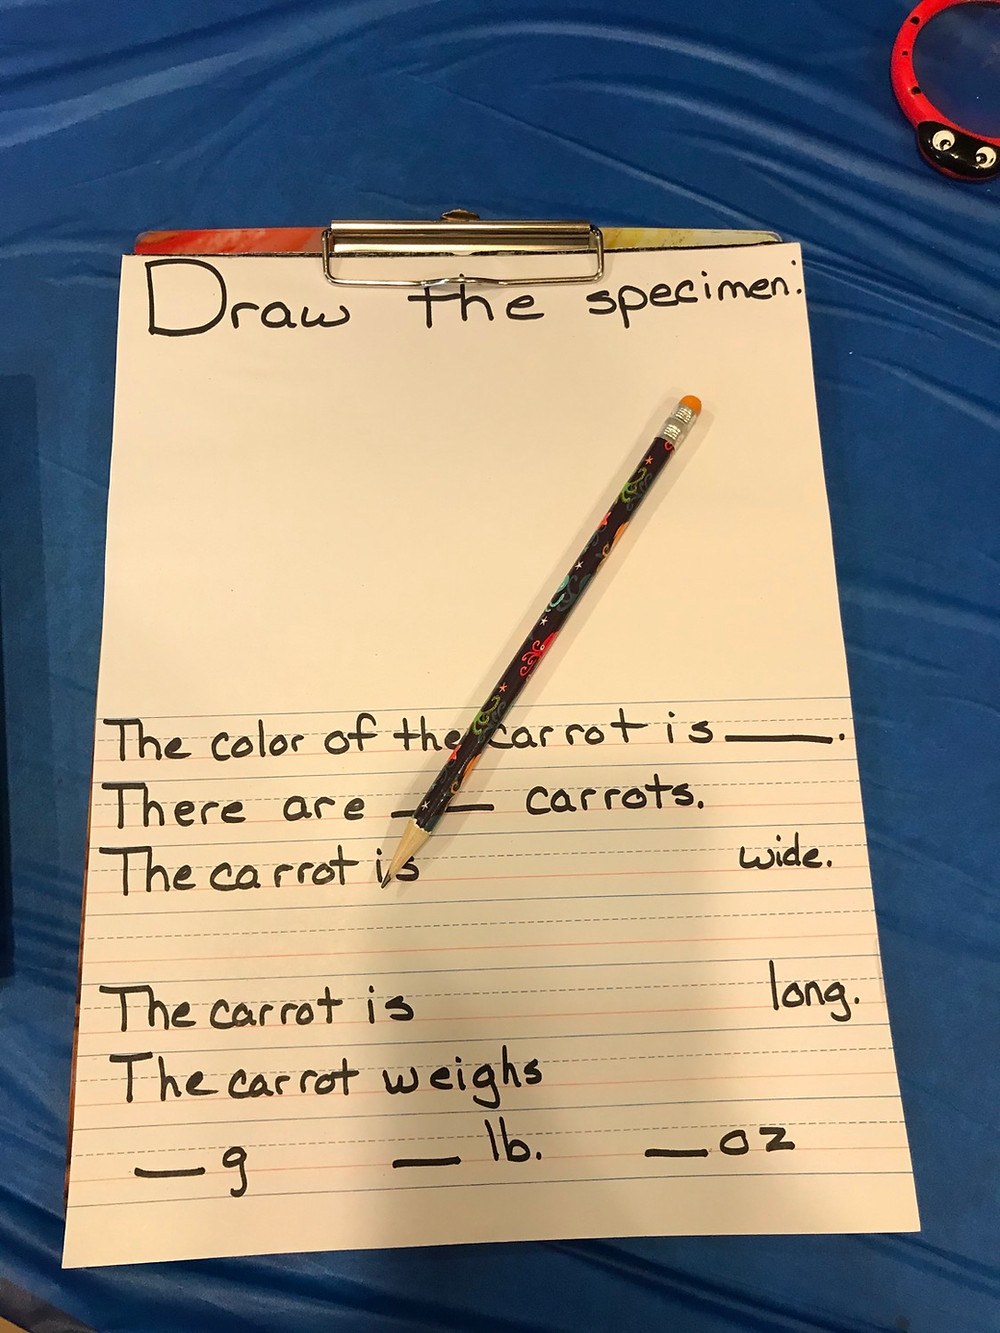 Draw the specimen:
The color of the carrot is ____.
There are ____ carrots.
The carrot is wide.
The carrot is long.
The carrot weighs
__ g __ lb. __ oz